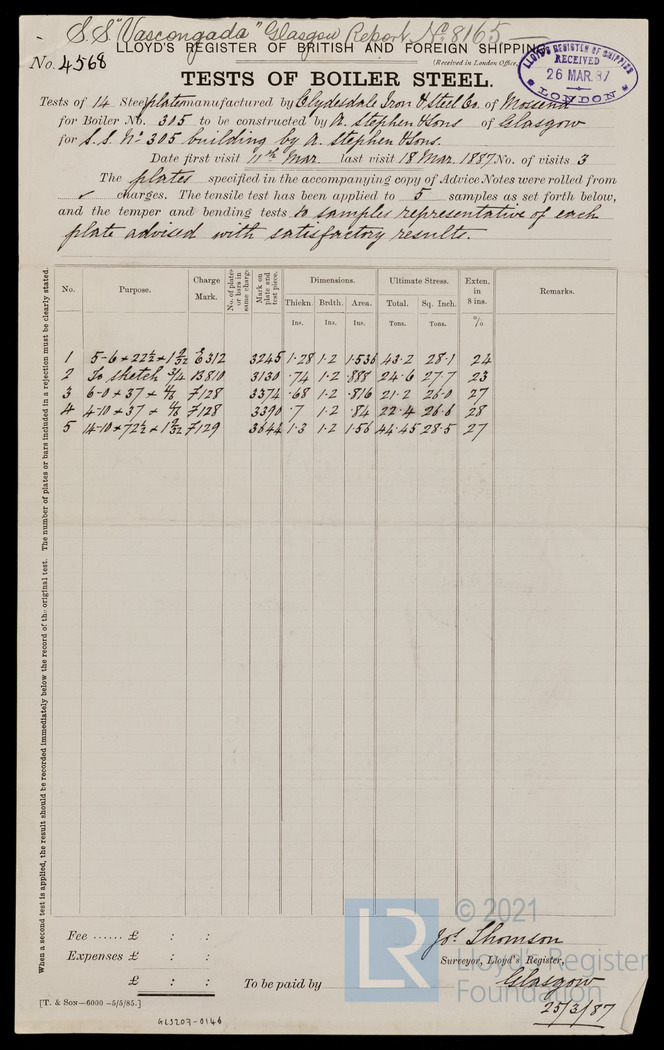 S.S. "Vascongada" Glasgow Report No. 8165 —
LLOYD'S REGISTER OF BRITISH AND FOREIGN SHIPPING
No. 4568
(Received in London Office,
LLOYD'S REGISTER OF SHIPPING
RECEIVED
26 MAR. 87
LONDON
TESTS OF BOILER STEEL.
Tests of 14 Steel plates manufactured by Clydesdale Iron & Steel Co. of Mossend
for Boiler No. 305 to be constructed by A. Stephen & Sons of Glasgow
for S.S. No 305 building by A. Stephen & Sons.
Date first visit 11th Mar. last visit 18 Mar. 1887 No. of visits 3
The plates specified in the accompanying copy of Advice Notes were rolled from
✓ charges. The tensile test has been applied to 5 samples as set forth below,
and the temper and bending tests to samples representative of each
plate advised with satisfactory results.
When a second test is applied, the result should be recorded immediately below the record of the original test. The number of plates or bars included in a rejection must be clearly stated.
No. Purpose. Charge Mark. No. of plates or bars in same charge Mark on plate and test piece. Dimensions. Ultimate Stress. Exten. in 8 ins. Remarks.
Thickn. Brdth. Area. Total. Sq. Inch.
Ins. Ins. Ins. Tons. Tons. %
1 5-6 × 22½ × 1 9/32 E312 3245 1·28 1·2 1·536 43·2 28·1 24
2 To sketch 3/4 B810 3130 ·74 1·2 ·888 24·6 27·7 23
3 6-0 × 37 × 11/16 F128 3374 ·68 1·2 ·816 21·2 26·0 27
4 4-10 × 37 × 11/16 F128 3390 ·7 1·2 ·84 22·4 26·6 28
5 14-10 × 72½ × 1 9/32 F129 3644 1·3 1·2 1·56 44·45 28·5 27
Fee ...... £ : :
Expenses £ : :
£ : :
To be paid by
Jos. Thomson
Surveyor, Lloyd's Register,
Glasgow
25/3/87
[T. & Son—6000—5/5/85.]
GLS207-0146
LR
© 2021
Lloyd's Register
Foundation